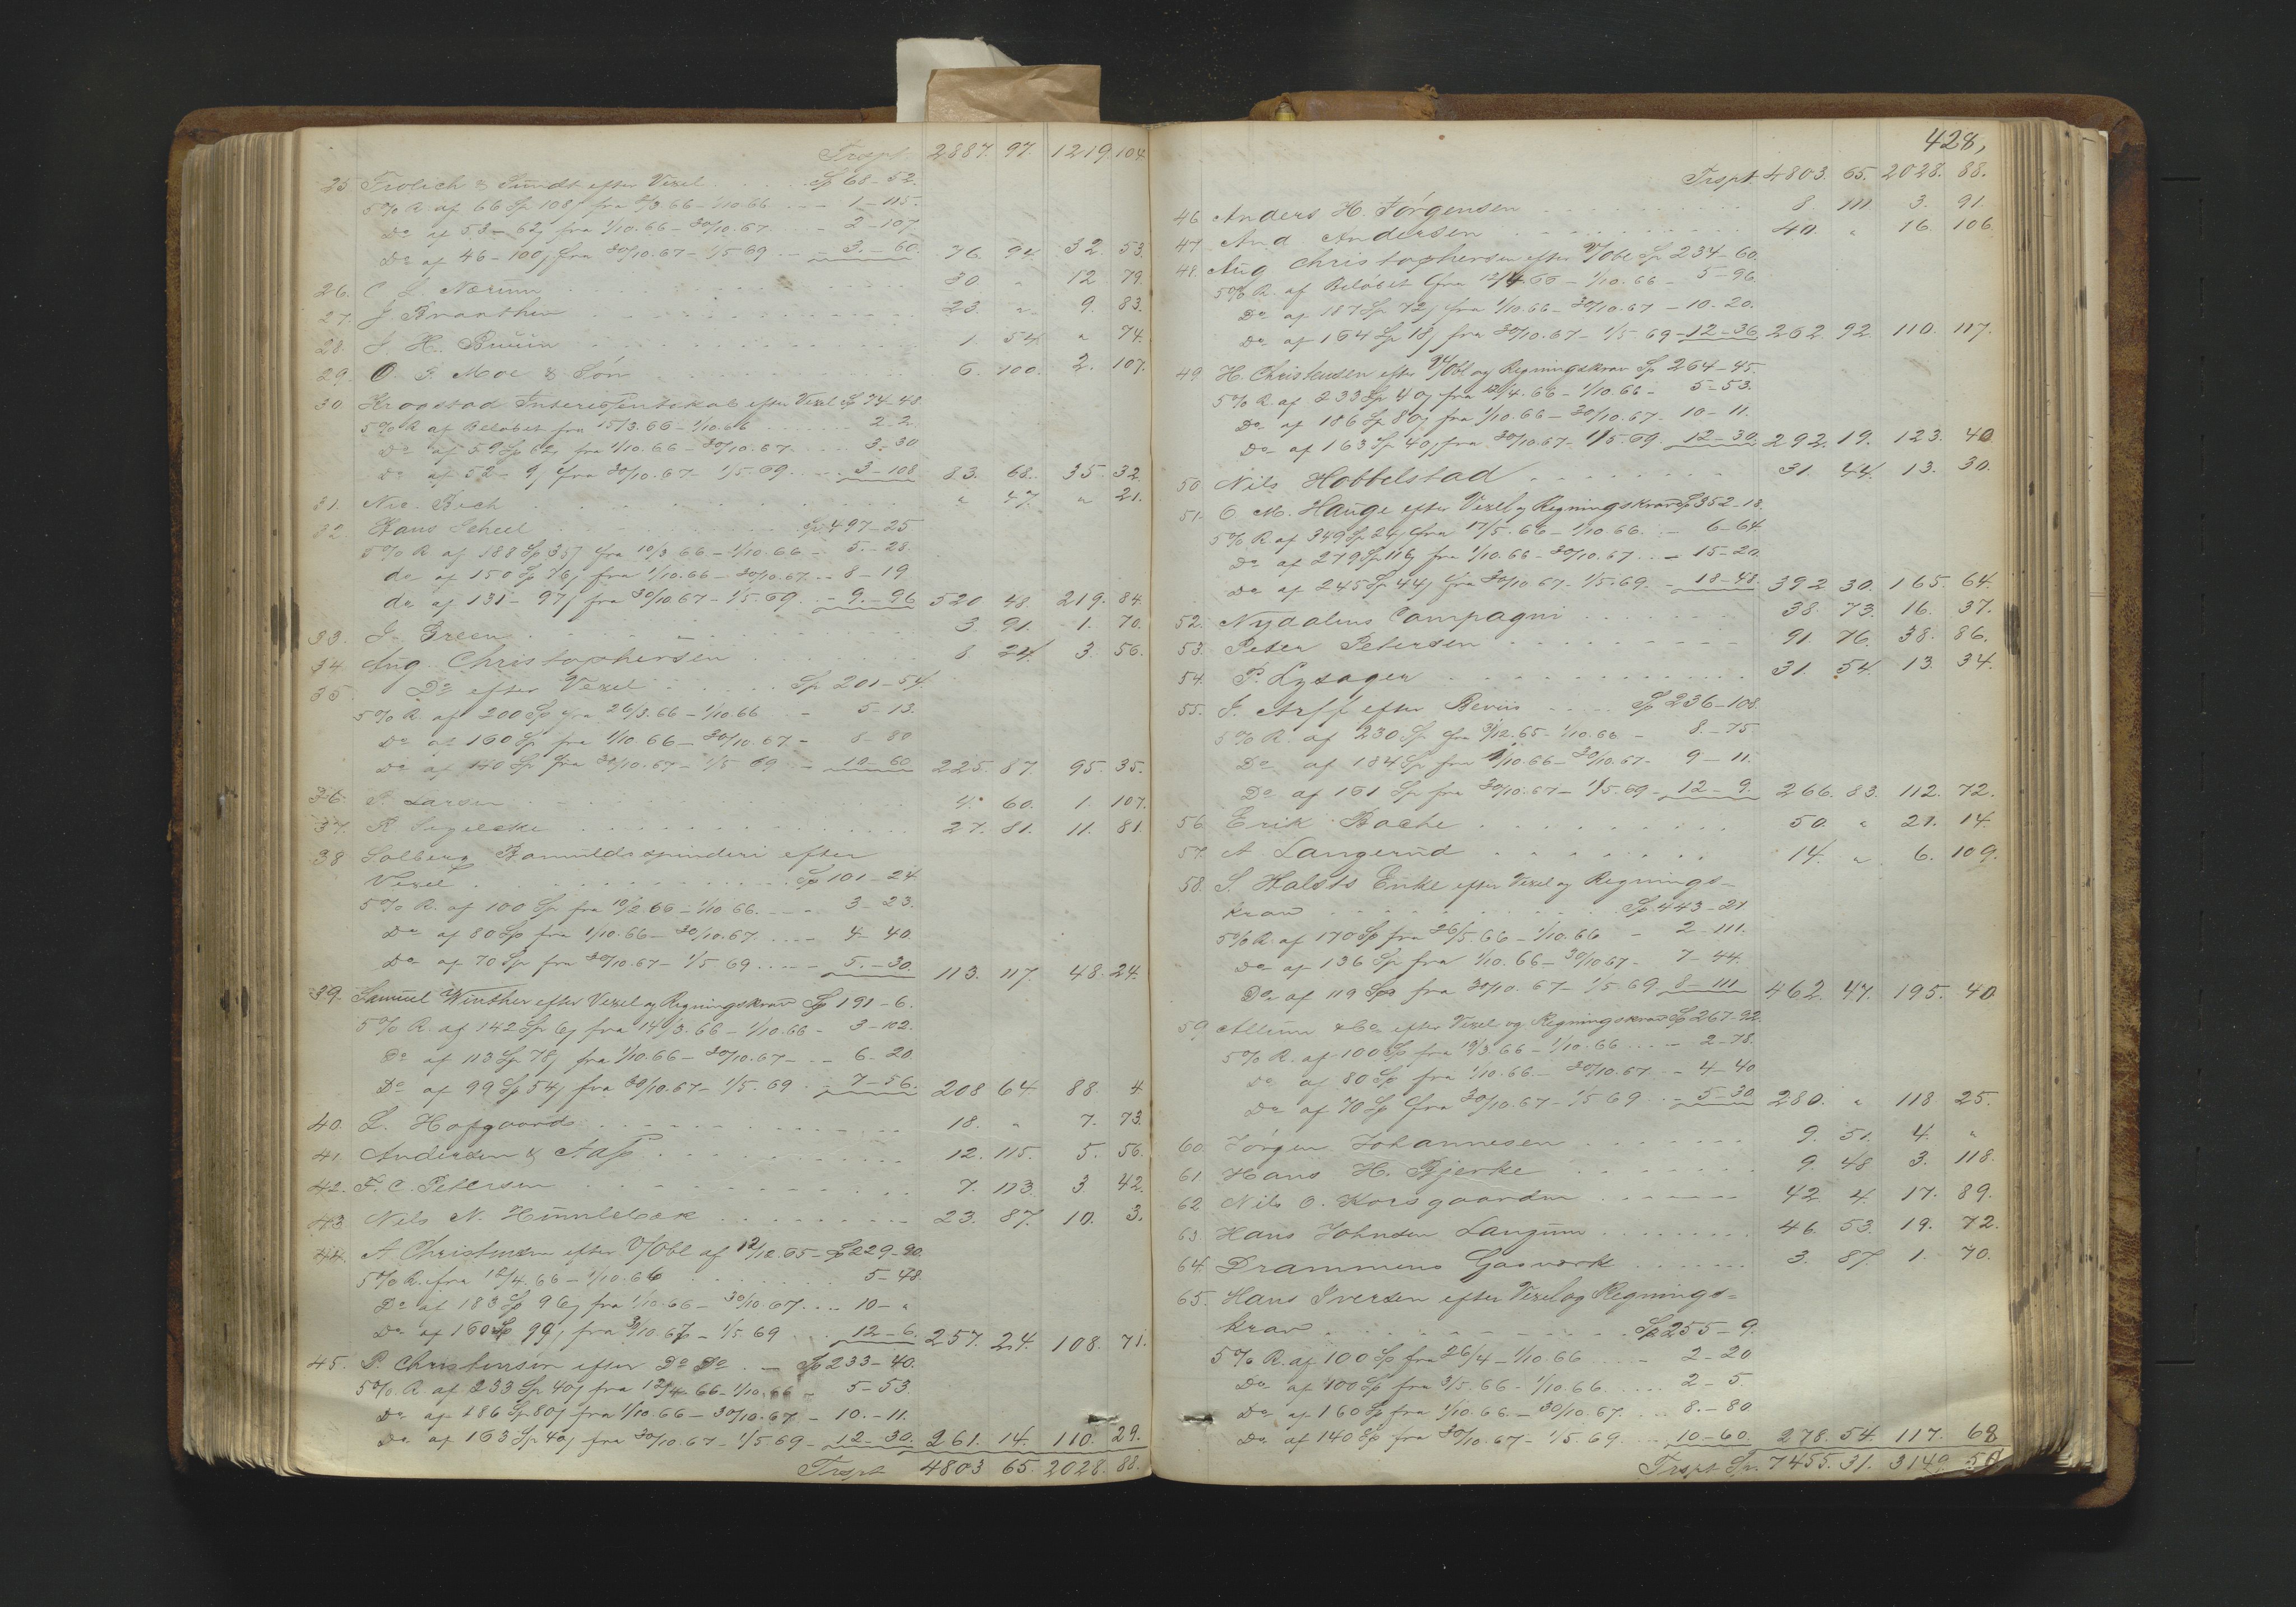 Trspt. 2887. 97. 1219 104
25 Frölich & Sundt efter Vexel . . . . Sp 68–52.
5% R. af 66 Sp 108 fra 2/3.66–1/10.66 . . – 1–115.
Do af 53–62 fra 1/10.66–30/10.67. – 2–107
Do af 46–100 fra 30/10.67–1/5 69 . . – 3.–60. 76. 94. 32. 53.
26. C. L. Nærum . . . 30. „ 12 79.
27. J. Branther . . . 23. „ 9. 83.
28. J. H. Bruun . . . 1. 54 „ 74.
29. O. J. Moe & Sön . . . 6. 100. 2. 107.
30. Krogstad Interessentskab efter Vexel Sp 74–48
5% R af Beløbet fra 15/3.66–1/10.66 . . . 2–2
Do af 59 Sp 62 fra 1/10.66–30/10.67. . . 3–30
Do af 52–9 fra 30/10.67–1/5.69. . . 3–108 83. 68. 35. 32.
31. Nic. Bech . . . „ 47. „ 21.
32. Hans Scheel . . . Sp 497–25
5% R af 188 Sp 35 fra 10/3 66–1/10.66 – 5.–28.
do af 150 Sp 76 fra 1/10.66–30/10.67. – 8–19
do af 131–97 fra 30/10.67–1/5.69. . – 9.–96 520 48. 219. 84.
33. J. Green . . . 3. 91. 1. 70.
34. Aug. Christophersen . . . 8. 24. 3. 56.
35. Do efter Vexel . . . Sp 201–54
5% R. af 200 Sp fra 26/3.66–1/10.66 – 5–13.
Do af 160 Sp fra 1/10 66–30/10 67. – 8–80
Do af 140 Sp fra 30/10.67–1/5 69 . – 10–60 225. 87 95. 35.
36. P. Larsen . . . 4. 60. 1. 107.
37. R. . . . 27. 81. 11. 81.
38 Solberg Bomuldsspinderi efter
Vexel . . . Sp 101–24
5% R. af 100 Sp fra 10/2 66–1/10 66. . – 3–23.
Do af 80 Sp fra 1/10.66–30/10.67 . . . – 4–40.
Do af 70 Sp fra 30/10.67–1/5 69 . . . – 5.–30. 113. 117. 48. 24.
39. Samuel Winther efter Vexel og Regningskrav Sp 191–6.
5% R. af 142 Sp 6 fra 14/3.66–1/10.66 – 3–102.
Do af 113 Sp 78 fra 1/10.66–30/10.67 – . – 6–20
Do af 99 Sp 54 fra 30/10.67–1/5–69 . – 7–56. 208 64. 88. 4.
40. L. Hofgaard . . . 18. „ 7. 73.
41. Andersen & Aass . . . 12. 115. 5. 56.
42. F. C. Petersen . . . 7. 113. 3 42.
43 Nils N. Humlebæk . . . 23. 87. 10. 3.
44. A. Christensen efter V/Obl af 12/12.65 – Sp 229–90.
5% R. fra 12/4.66–1/10.66 . . . 5–48.
Do af 183 Sp 96 fra 1/10.66–30/10.67. . . 10–„
Do af 160 Sp 99 fra 30/10.67–1/5 69 . . 12–6. 257. 24. 108. 71.
45. P. Christensen efter Do Do . – Sp 233–40.
5%. R. af 233 Sp 40 fra 12/4 66–1/10.66 – 5–53.
Do af 186 Sp 80 fra 1/10.66–30/10.67. – 10.–11.
Do af 163 Sp 40 fra 30/10.67–1/5.69 – 12–30. 261. 14. 110. 29.
Trspt 4803 65. 2028. 88.
428,
Trspt. 4803. 65. 2028. 88.
46. Anders H. Jörgensen . . . 8. 111 3. 91.
47. And. Andersen . . . 40. „ 16. 106.
48. Aug Christophersen efter V/Obl Sp 234–60.
5% R. af Beløbet fra 12/4.66–1/10.66 – 5–96.
Do af 187 Sp 72 fra 1/10.66–30/10.67 – 10–20.
Do af 164 Sp 18 fra 30/10.67–1/5 69 – 12–36. 262. 92. 110. 117.
49 H. Christensen efter V/Obl og Regningskrav Sp 264–45.
5% R. af 233 Sp 40 fra 12/4.66–1/10.66 – 5–53.
Do af 186 Sp 80 fra 1/10.66–30/10.67. 10–11.
Do af 163 Sp 40 fra 30/10.67–1/5 69. 12–30. 292. 19. 123. 40
50. Nils Hobbelstad . . . 31. 44. 13. 30.
51. O. M. Hauge efter Vexel og Regningskrav Sp 352–18.
5% R. af 349 Sp 24 fra 17/5.66–1/10.66. – 6–64
Do af 279 Sp 116 fra 1/10.66–30/10.67 . . – 15–20
Do af 245 Sp 44 fra 30/10 67–1/5.69. – 18–48. 392 30. 165. 64.
52. Nydalens Compagni . . . 38. 73. 16. 37.
53. Peter Petersen . . . 91. 76. 38. 86.
54. P. Lysager . . . 31. 54. 13. 34.
55. J. Arff efter Beviis . . . Sp 236–108.
5% R. af 230 Sp fra 31/12.65–1/10.66 – 8.–75.
Do af 184 Sp fra 1/10.66–30/10.67. 9–11.
Do af 161 Sp fra 30/10.67–1/5.69 – 12–9. 266. 83. 112. 72.
56. Erik Bache . . . 50. „ 21. 14.
57. A. Langerud . . . 14. „ 6. 109.
58. S. Halsts Enke efter Vexel og Regnings–
krav . . . Sp 443–21
5% R. af 170 Sp fra 26/5.66–1/10.66 – 2–111.
Do af 136 Sp fra 1/10.66–30/10.67 – 7–44.
Do af 119 Sp fra 30/10.67–1/5 69. 8–111 462. 47. 195. 40
59 Allum & Co efter Vexel og Regningskrav Sp 267–92.
5% R. af 100 Sp fra 19/3.66–1/10.66 . . . – 2–78.
Do af 80 Sp fra 1/10.66.–30/10.67 . – 4–40
Do af 70 Sp fra 30/10.67–1/5 69 . – 5–30 280. „ 118 25.
60. Jörgen Johannesen . . . 9. 51. 4. „
61 Hans H. Bjerke . . . 9. 48 3. 118.
62 Nils O. Korsgaarden . . . 42 4. 17. 89.
63. Hans Johnsen Langum . . . 46. 53. 19. 72.
64. Drammens Gasværk . . . 3. 87 1. 70.
65. Hans Iversen efter Vexel og Regnings–
krav . . . Sp 255–9.
5% R. af 100 Sp fra 26/4–1/10.66 . . – 2–20
Do af 100 Sp fra 3/5.66–1/10.66. . . . 2–5
Do af 160 Sp fra 1/10.66.–30/10.67. . . 8.–80
Do af 140 Sp fra 30/10.67–1/5.69. . . 10–60. 278. 54. 117. 68
Trspt Sp. 7455. 31. 3149. 50